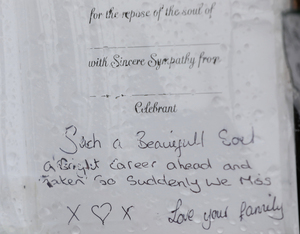 for the repose of the soul of
with Sincere Sympathy from
Celebrant
Such a Beautifull Soul
a Bright Career ahead and
Taken So Suddenly We Miss
X ♡ X Love your family